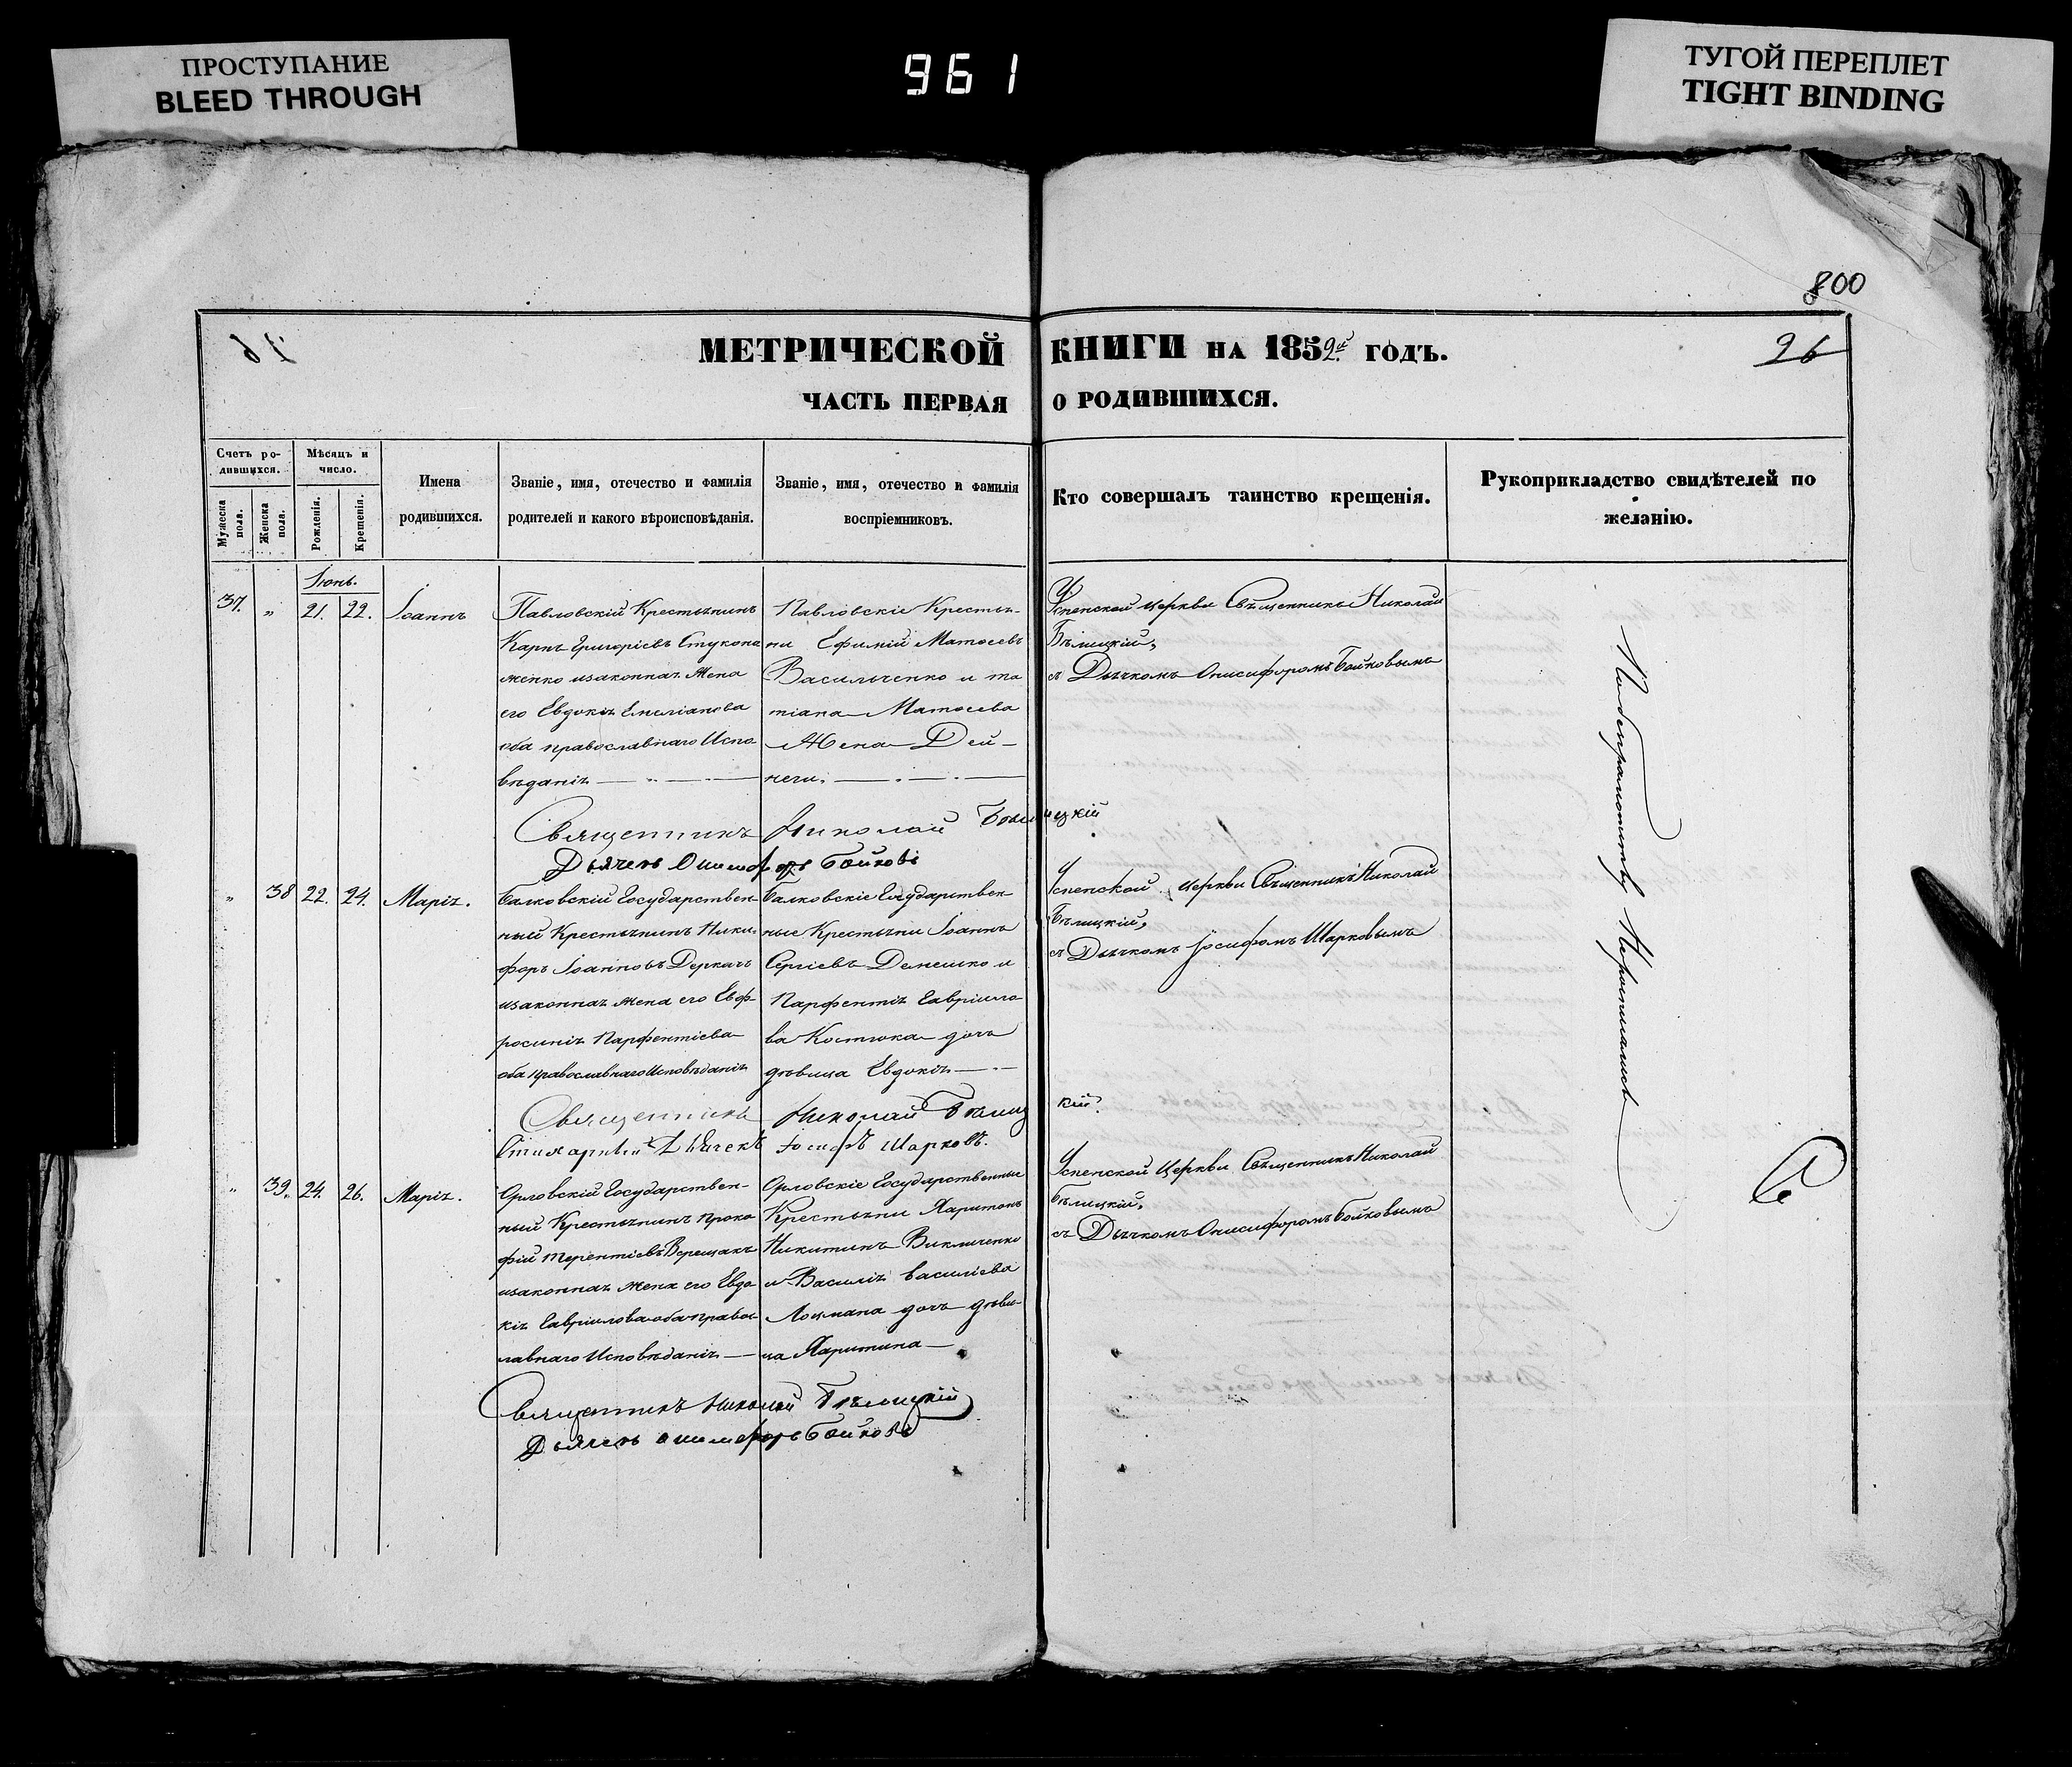 ПРОСТУПАНИЕ
BLEED THROUGH
961
ТУГОЙ ПЕРЕПЛЕТ
TIGHT BINDING
800
МЕТРИЧЕСКОЙ КНИГИ НА 1852й ГОДЪ.
26
ЧАСТЬ ПЕРВАЯ О РОДИВШИХСЯ.
Счетъ ро-
дившихся.
Мужеска
пола.
Женска
пола.
Мѣсяцъ и
число.
Рожденія.
Крещенія.
Имена
родившихся.
Званіе, имя, отечество и фамилія
родителей и какого вѣроисповѣданія.
Званіе, имя, отечество и фамилія
воспріемниковъ.
Кто совершалъ таинство крещенія.
Рукоприкладство свидѣтелей по
желанію.
Іюнь.
37. „ 21. 22. Іоаннъ
Павловскій Крестьянинъ
Карпъ Григоріевъ Стукона
женко изаконная Жена
его Евдокія Емеліанова
оба православнаго Испо-
вѣданія
Павловскіе Крестья-
ни Ефимій Матѳеевъ
Васильченко и та
тіана Матѳеева
Жена Дей-
неги.
Успенской церкви Священникъ Николай
Бѣлицкій,
съ Дьячкомъ Онисифоромъ Бойковымъ
Священникъ Николай Бѣлицкій
Дьячекъ Онисифоръ Бойковъ
„ 38 22. 24. Марія.
Балковскій Государствен-
ный Крестьянинъ Ники-
форъ Іоанновъ Деркачъ
изаконная жена его Евф-
росинія Парфентіева
оба православнаго Исповѣданія
Балковскіе Государствен-
ные Крестьяни Іоаннъ
Сергіевъ Демешко и
Парфентія Гавріило-
ва Костюка дочь
дѣвица Евдокія
Успенской церкви Священникъ Николай
Бѣлицкій,
съ Дьячкомъ Іосифомъ Шарковымъ
Священникъ Николай Бѣлицкій.
Стихарный Дьячекъ Іосифъ Шарковъ.
„ 39. 24. 26. Марія.
Орловскій Государствен-
ный Крестьянинъ Проко
фій Терентіевъ Верещакъ
изаконная жена его Евдо
кія Гавріилова оба правос-
лавнаго Исповѣданія
Орловскіе Государственные
Крестьяни Харитонъ
Никитинъ Викличенко
и Василія Василіева
Лоцмана дочь дѣви-
ца Харитина
Успенской Церкви Священникъ Николай
Бѣлицкій,
съ Дьячкомъ Онисифоромъ Бойковымъ
Священникъ Николай Бѣлицкій
Дьячекъ Онисифоръ Бойковъ